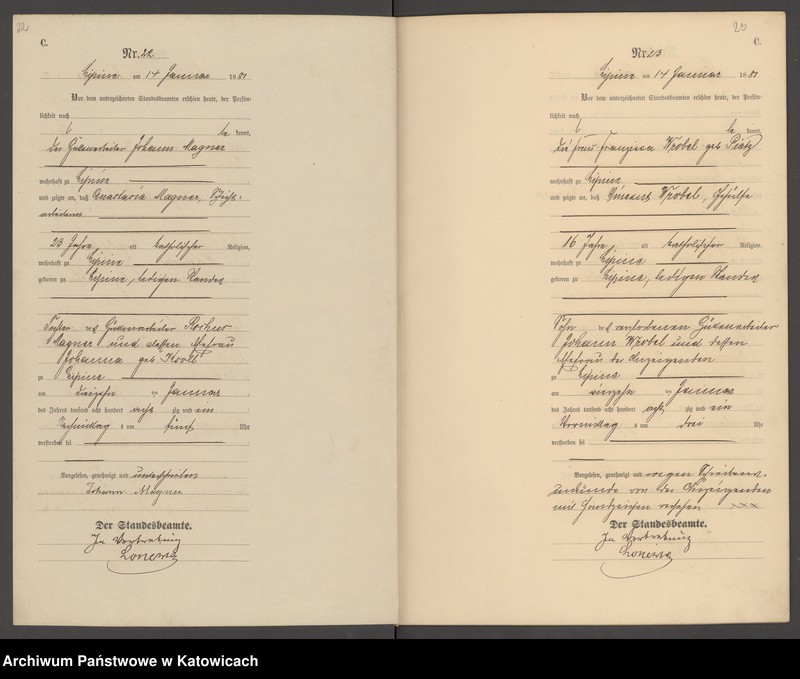 22
C.
Nr. 22
Lipine am 14 Januar 1881
Vor dem unterzeichneten Standesbeamten erschien heute, der Persön-
lichkeit nach
be kannt,
der Hüttenarbeiter Johann Magner
wohnhaft zu Lipine
und zeigte an, daß Anastasia Magner,
arbeiterin
23 Jahre alt katholischer Religion,
wohnhaft zu Lipine
geboren zu Lipine, ledigen Standes
Tochter des Hüttenarbeiter Rochus
Magner und dessen Ehefrau
Johanna geb Kroll
zu Lipine
am dreizehn ten Januar
des Jahres tausend acht hundert acht zig und ein
Nachmittag s um fünf Uhr
verstorben sei
Vorgelesen, genehmigt und unterschrieben
Johann Magner
Der Standesbeamte.
In Vertretung
23
C.
Nr. 23
Lipine am 14 Januar 1881
Vor dem unterzeichneten Standesbeamten erschien heute, der Persön-
lichkeit nach
be kannt,
die Frau Franziska Wrobel geb
wohnhaft zu Lipine
und zeigte an, daß Vincent Wrobel,
16 Jahre alt katholischer Religion,
wohnhaft zu Lipine
geboren zu Lipine, ledigen Standes
Sohn des verstorbenen Hüttenarbeiter
Johann Wrobel und dessen
Ehefrau der Anzeigenden
zu Lipine
am vierzehn ten Januar
des Jahres tausend acht hundert acht zig und ein
Vormittag s um drei Uhr
verstorben sei
Vorgelesen, genehmigt und wegen Schreibens-
unkunde von der Anzeigenden
mit Handzeichen versehen xxx
Der Standesbeamte.
In Vertretung
Archiwum Państwowe w Katowicach